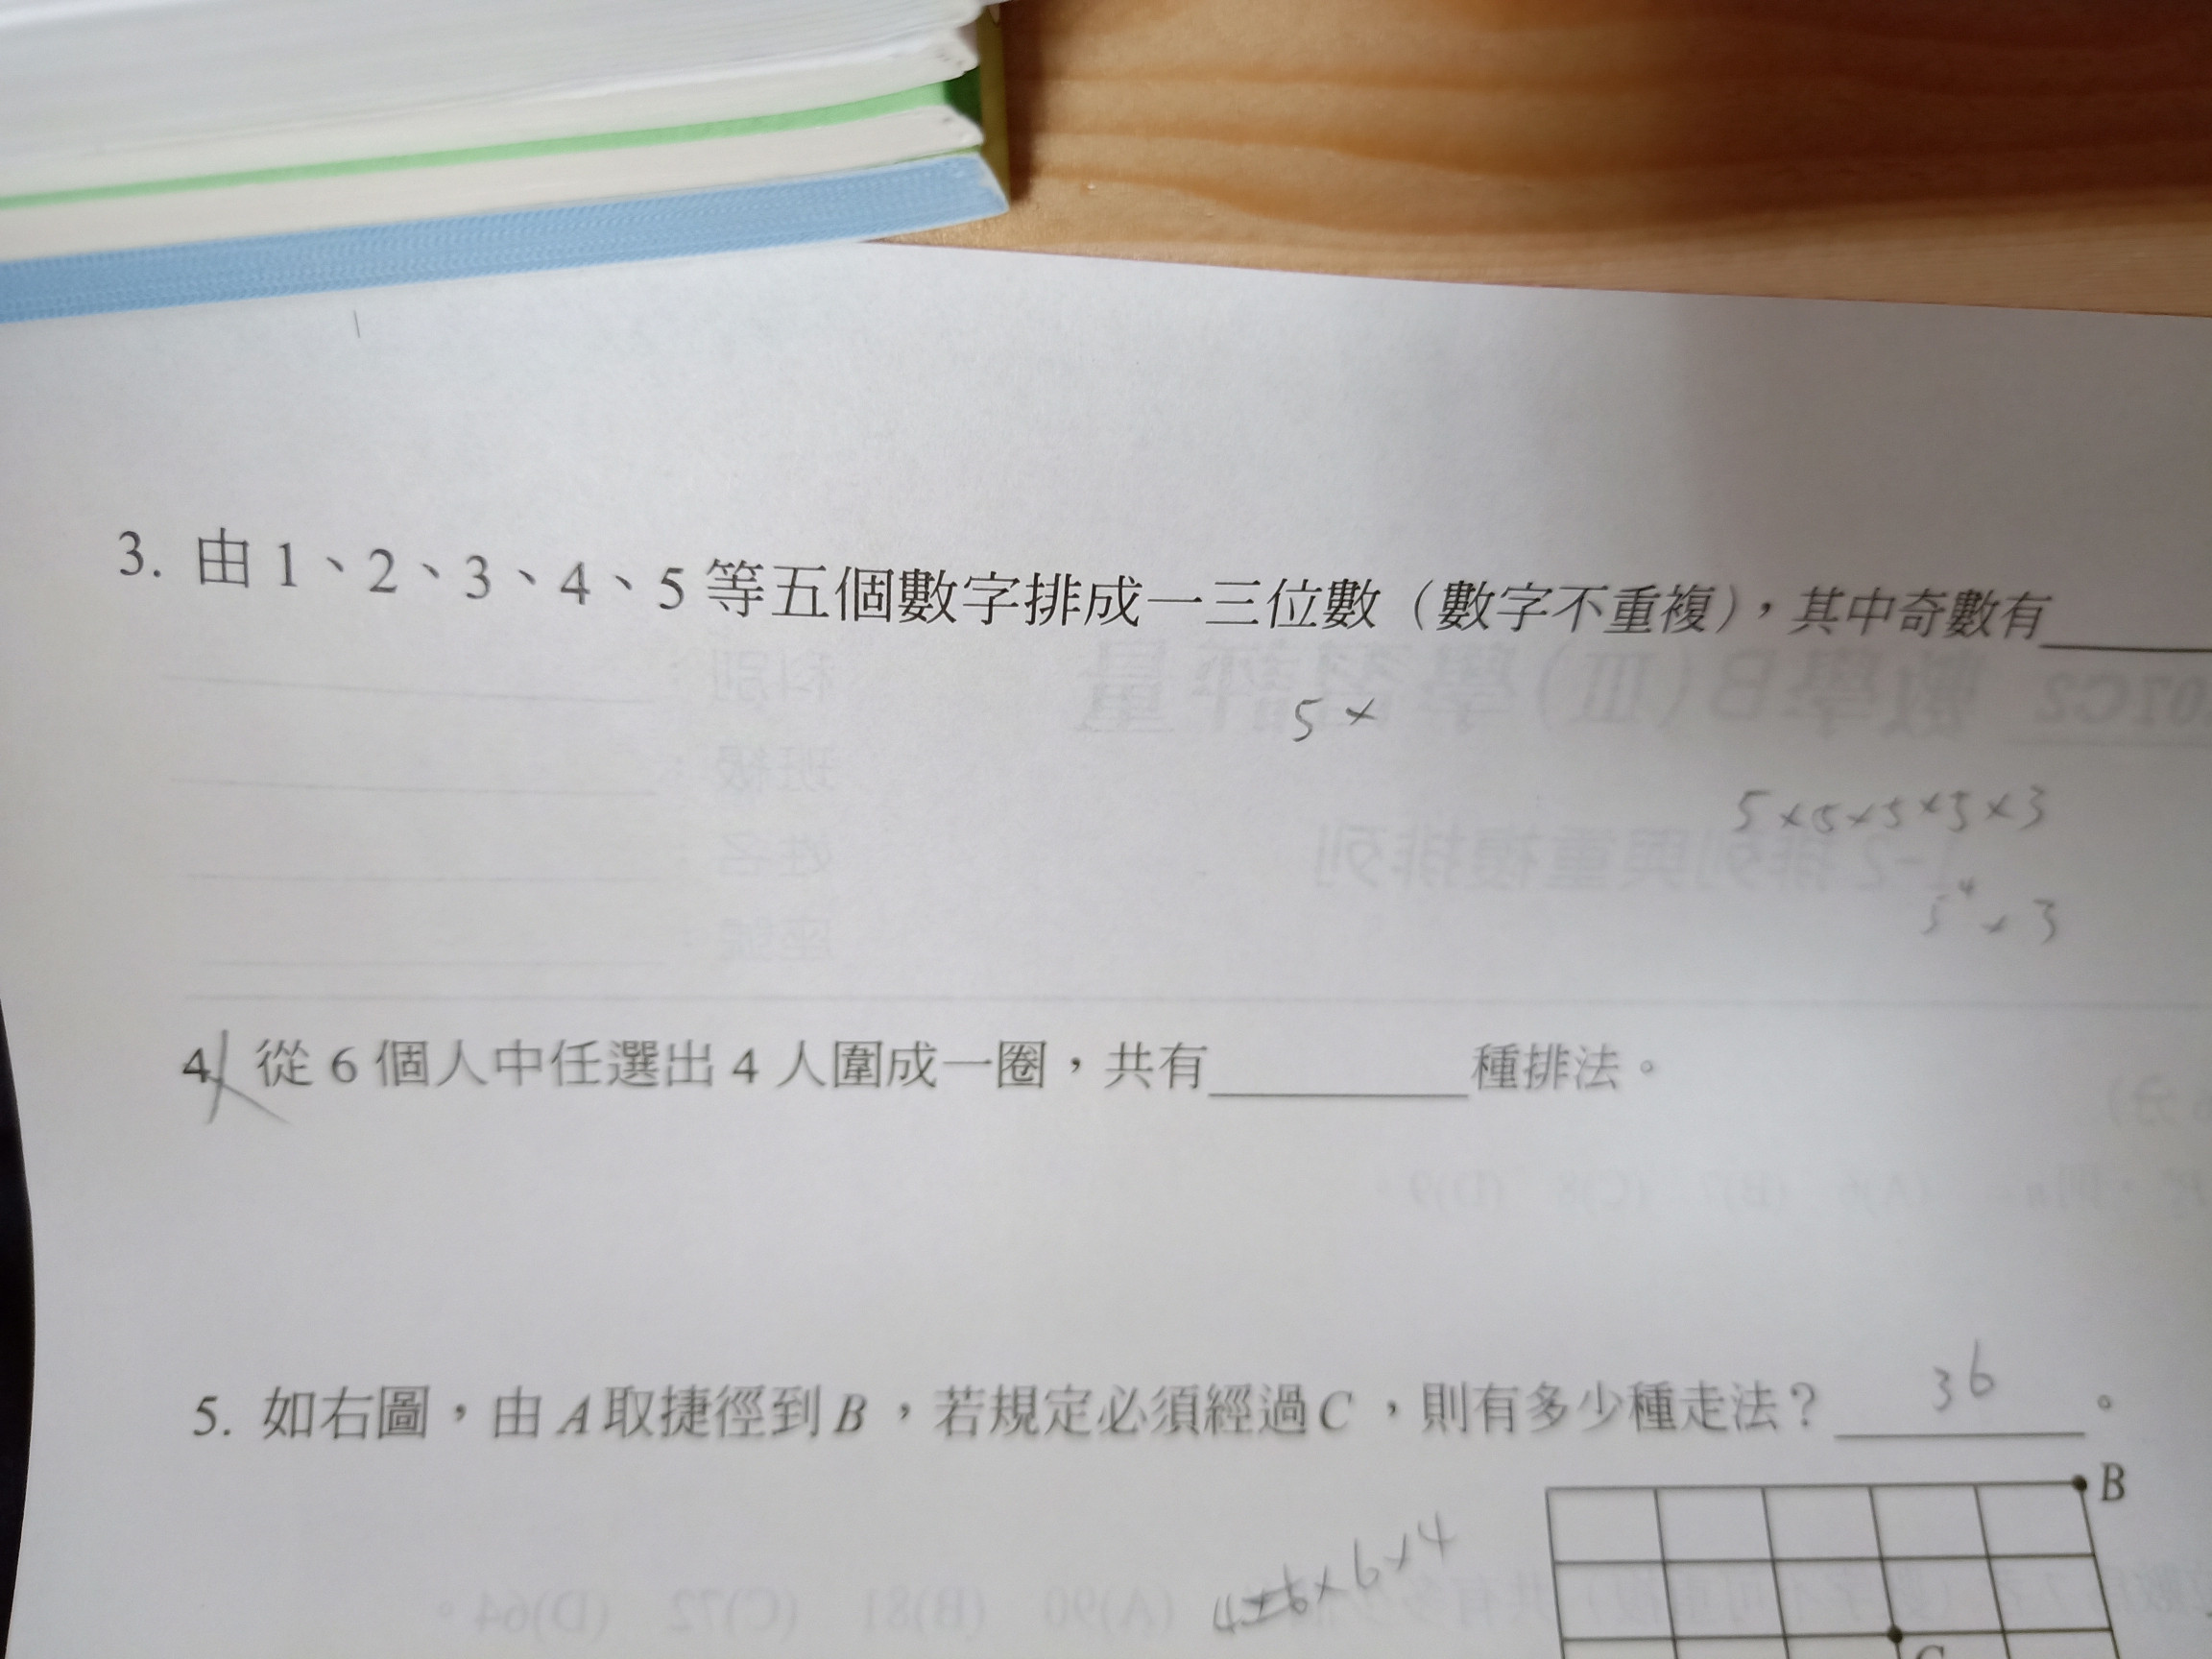 3. 由 1、2、3、4、5 等五個數字排成一三位數（數字不重複），其中奇數有
5×
5×5×5×5×3
5⁴×3
4. 從 6 個人中任選出 4 人圍成一圈，共有________種排法。
5. 如右圖，由 A 取捷徑到 B ，若規定必須經過 C ，則有多少種走法？ 36 。
B
×6×4
C